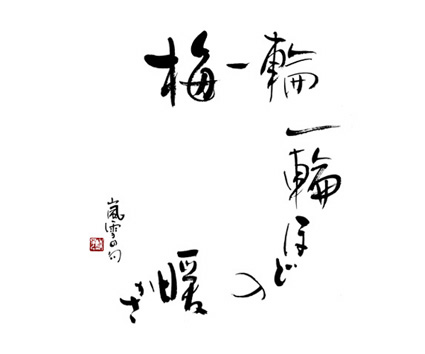 梅一輪
一輪
ほど
の
暖
かさ
嵐雪の句